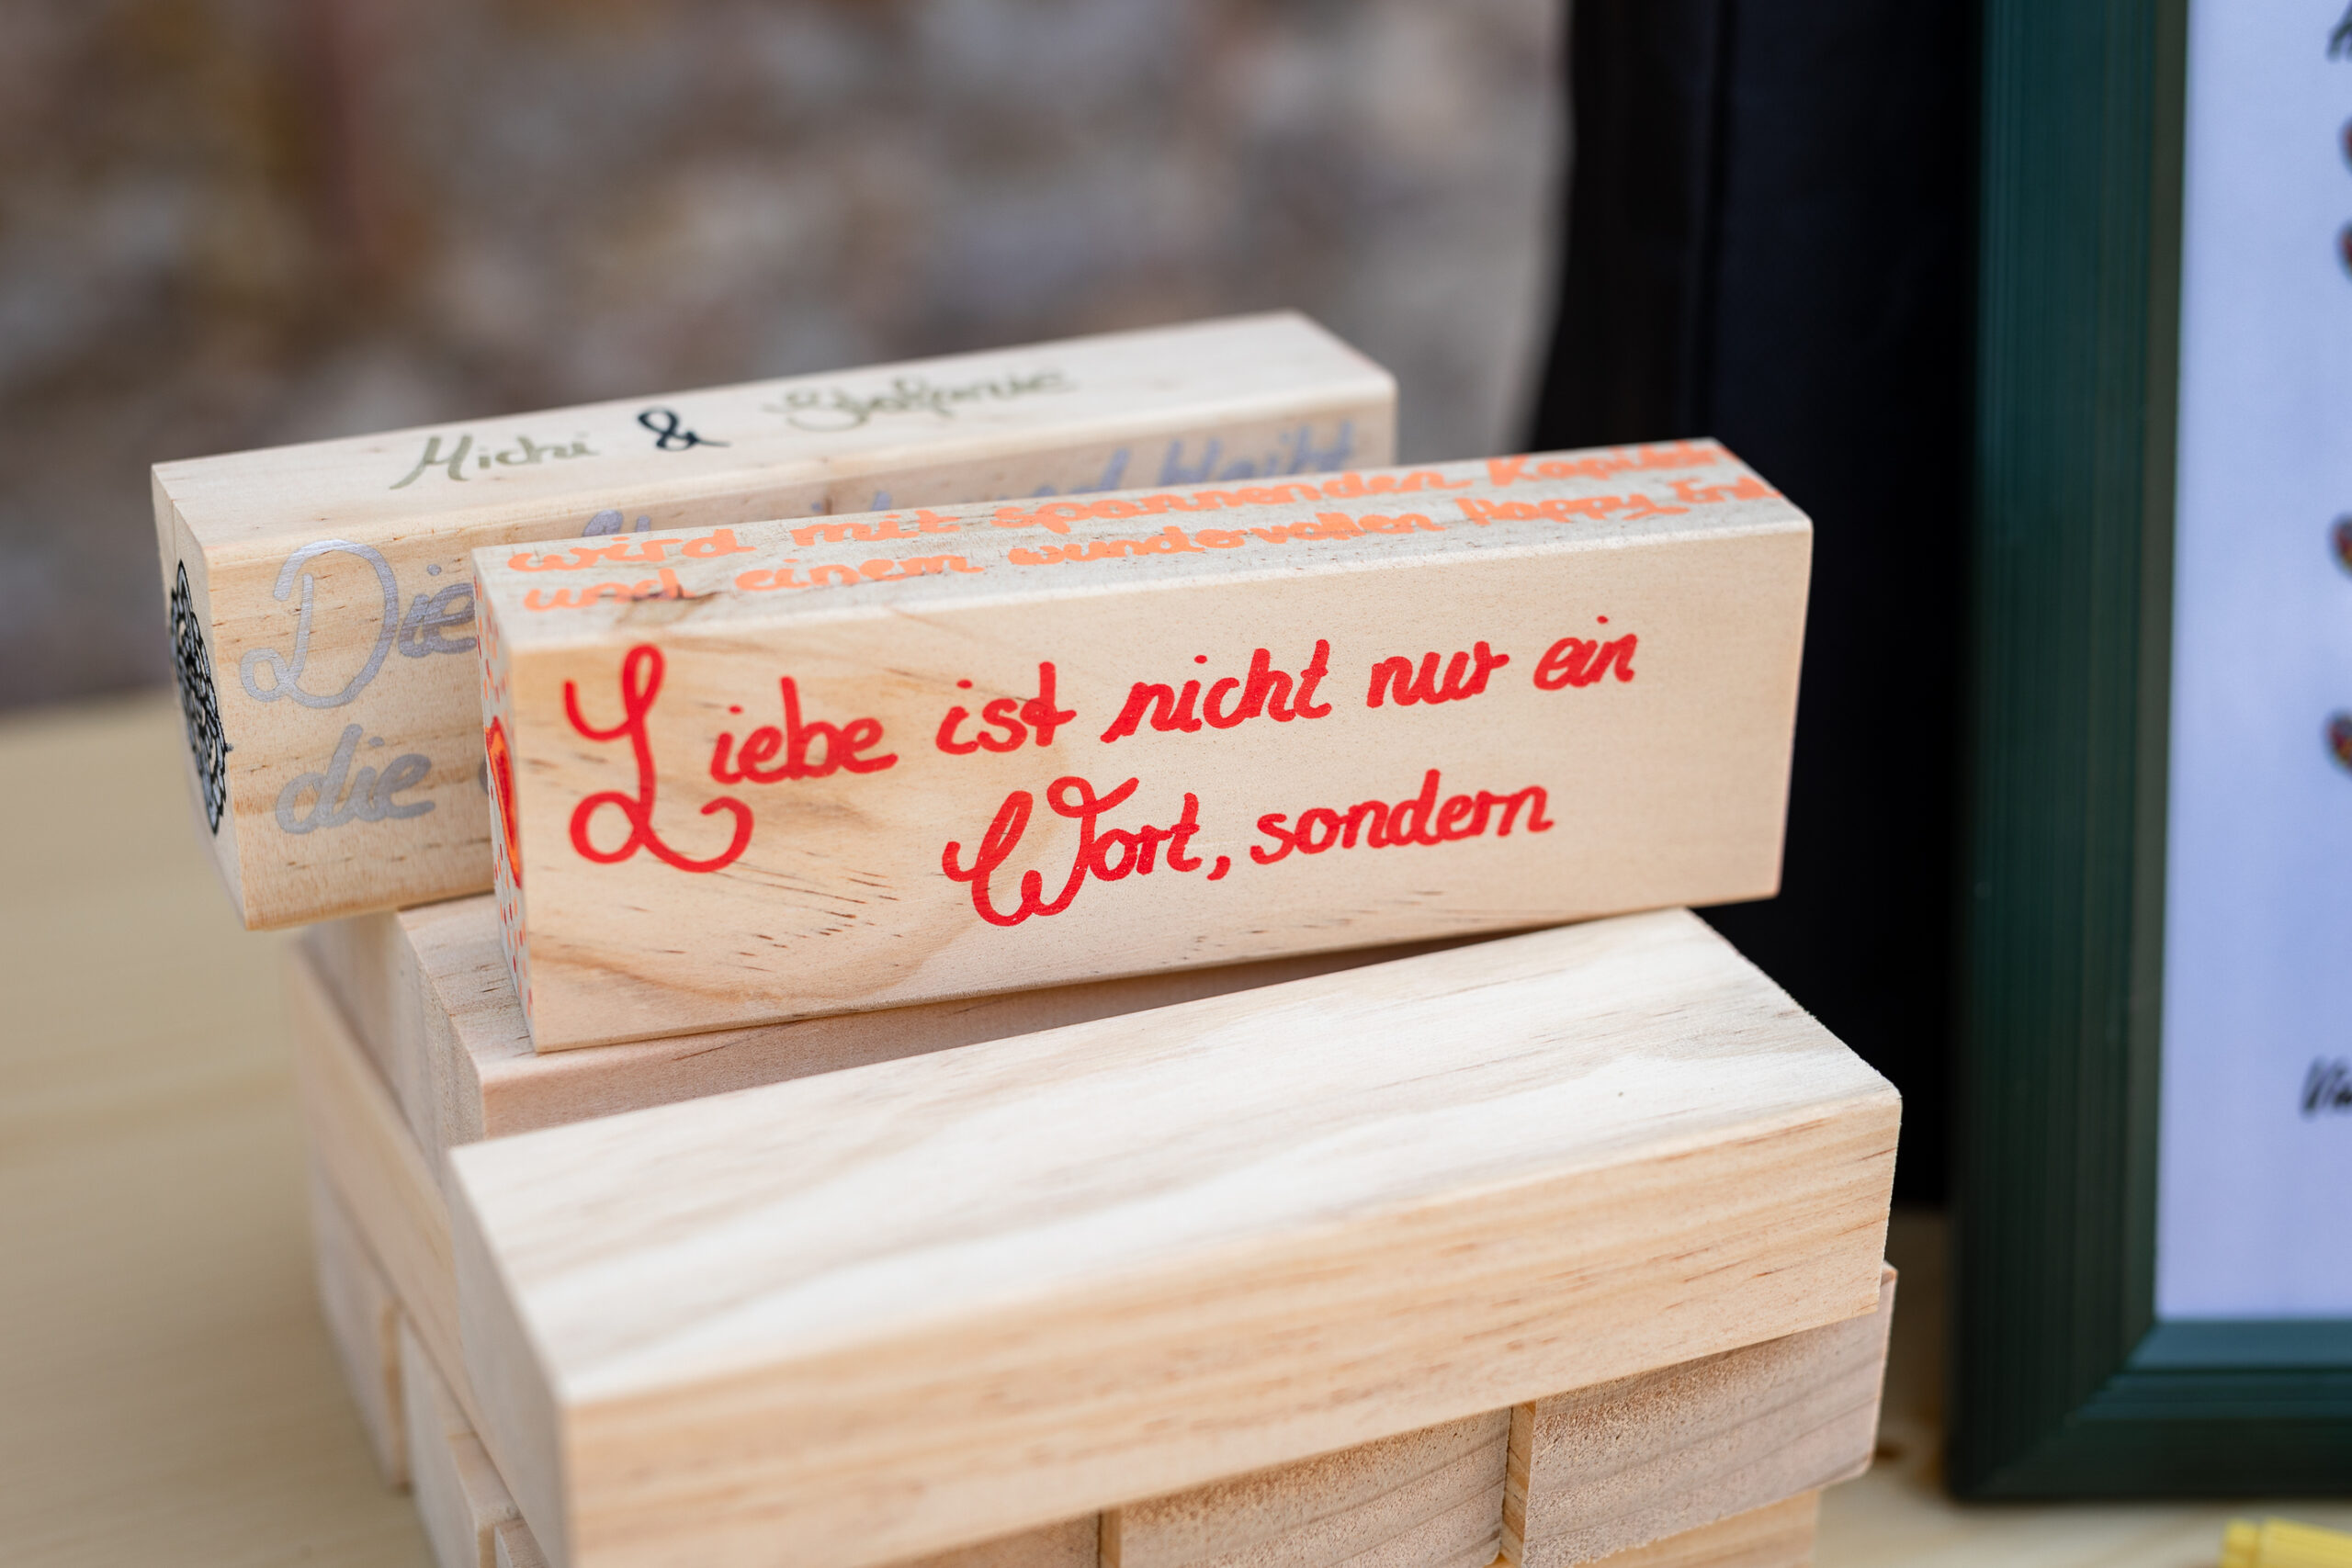 Michi & Stefanie
Die und bleibt
die
wird mit spannenden Kapiteln
und einem wundervollen Happy End
Liebe ist nicht nur ein
Wort, sondern